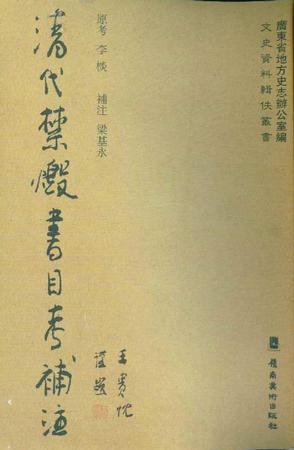 廣東省地方史志辦公室編
文史資料輯佚叢書
原考 李棪 補注 梁基永
清代禁燬書目考補注
王貴忱
謹題
嶺南美術出版社